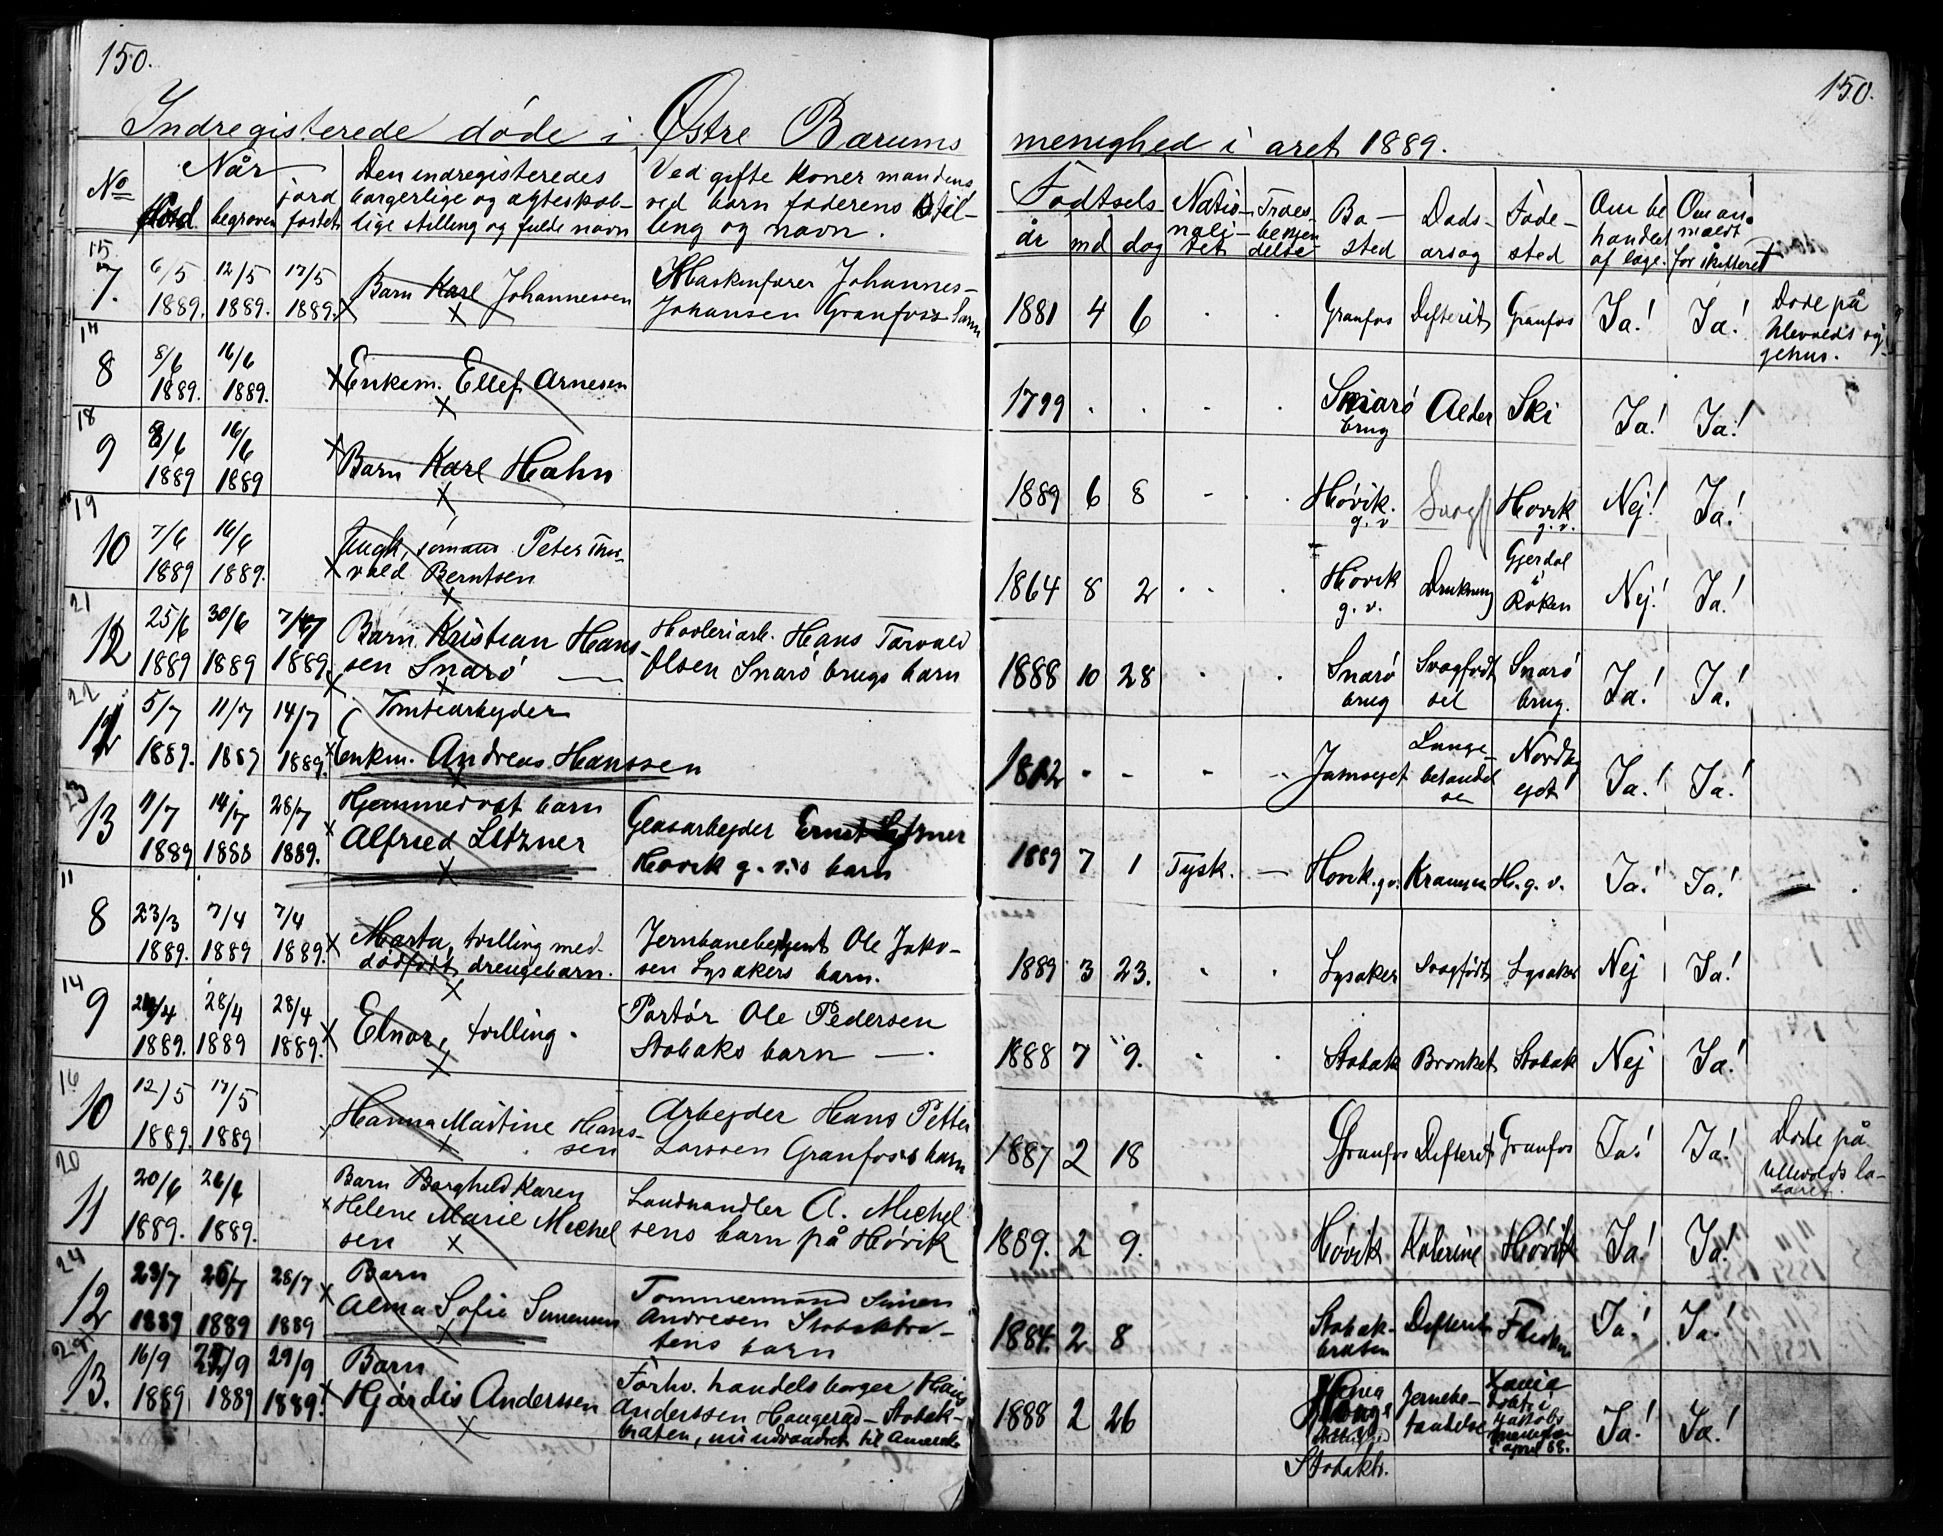 150.
150.
Indregisterede døde i Østre Bærums menighed i aret 1889.
No Når begraven jordfæstet
Den indregisteredes borgerlige og ægteskablige stilling og fulde navn
Ved gifte koner mandens, ved børn faderens stilling og navn.
Fødtsels år md dag
Nationalitet
Troesbekjendelse
Bosted
Dødsårsag
Fødested
Om behandlet af læge.
Om anmeldt for skifteret
15
7. 6/5 1889. 12/5 1889. 17/5 1889. Barn Karl Johannessen Maskinfører Johannes Johansen Granfoss barn 1881 4 6 Granfos Difterit Granfos Ja! Ja! Døde på Ulevolds sygehus.
17
8 8/6 1889. 16/6 1889. Enkem. Ellef Arnesen 1799 Snarø brug Alder Ski Ja! Ja!
18
9 8/6 1889 16/6 1889 Barn Karl Hahn 1889 6 8 Høvik g. v. Svag Høvik g. v. Nej! Ja!
19
10 7/6 1889 16/6 1889. Ungk, sømand Peter Thorvald Berntsen 1864 8 2 Høvik g. v. Drukning Gjerdal i Røken Nej! Ja!
21
12 25/6 1889 30/6 1889 7/7 1889. Barn Kristian Hanssen Snarø Høvleriarb. Hans Torvald Olsen Snarø brugs barn 1888 10 28 Snarø brug Svagfødtsel Snarø brug. Ja! Ja!
22
12 5/7 1889. 11/7 1889 14/7 1889. Tomtearbejder Enkm. Andreas Hanssen 1812 Jamsejet Lungebetændelsen Ja! Ja!
23
13 11/7 1889 14/7 1888 28/7 1889. Hjemmedøbt barn Alfried Litzner Glasarbejder Ernst Litzner Høvik g. v.s barn 1889 7 1 Tysk. Høvik. g.v. Krampen H. g. v. Ja! Ja!
11
8 23/3 1889. 7/4 1889 7/4 1889. Marta, tvilling med dødfødt drengebarn. Jernbanebetjent Ole Jakosen Lysakers barn. 1889 3 23. Lysaker Svagfødt Lysaker Nej Ja!
14
9 1889. 28/4 1889 28/4 1889. Elnar, tvilling. Portør Ole Pedersen Stabæks barn 1888 7 9. Stabæk Bronket Stabæk Nej Ja!
16
10 12/5 1889. 17/5 1889 Hanna Martine Hanssen Arbejder Hans Petter Larssen Granfoss barn 1887 2 18 Granfos Difterit Granfos Ja! Ja! Døde på Ullevolds lasaret.
20
11 20/6 1889. 26/6 1889. Barn Borghild Karen Helene Marie Michelsen Landhandler A. Michelsens barn på Høvik 1889. 2 9. Høvik Kolerine Høvik Ja! Ja!
24
12 23/7 1889 26/7 1889 28/7 1889 Barn Alma Sofie Simensen Tømmermand Simen Andresen Stabækbråtens barn 1884. 2 8 Stabækbråten Difterit Ja! Ja!
29
13. 16/9 1889 1889 29/9 1889! Barn Hjørdis Anderssen Forhv. handelsborger Hans Anderssen Haugerud - Stabækbråten, nu udvandret til Amerika 1888 2 26 Stabækb. Jernebetændelse april 88. Ja! Ja!